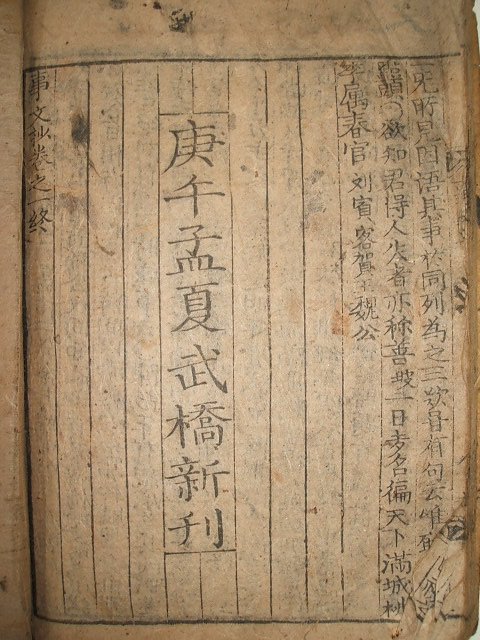 所見因語其事於同列為之三歎員有句云唯
點頭〇欲知君得人失者亦称善一日声名徧天下滿城桃
李属春官 刘賓客賀王魏公
庚午孟夏武橋新刊
事文抄卷之一終